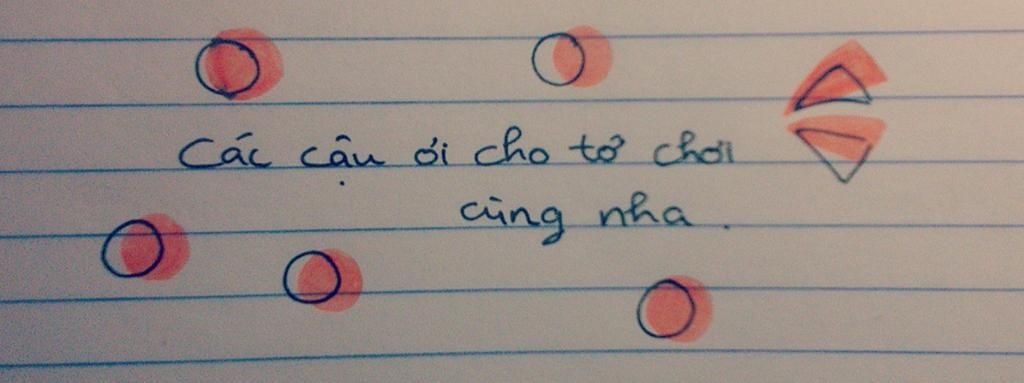 Các cậu ới cho tớ chơi
cùng nha.